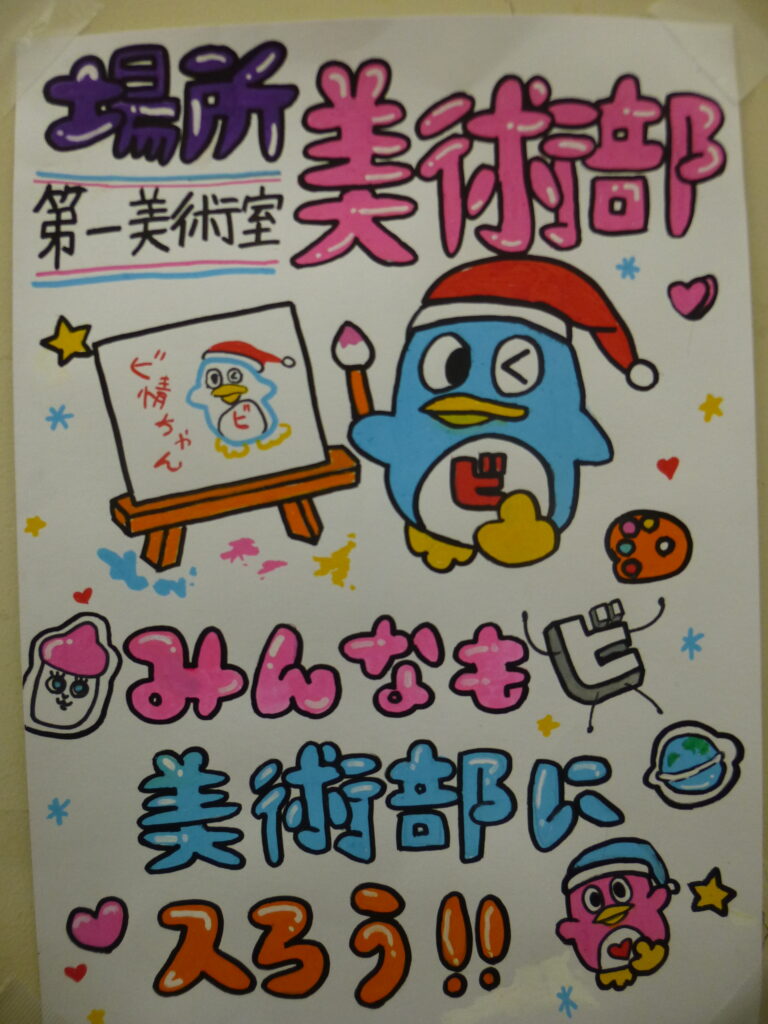 場所
第一美術室
美術部
ビ情ちゃん
ビ
ビ
みんなも
ビ
美術部に
入ろう!!